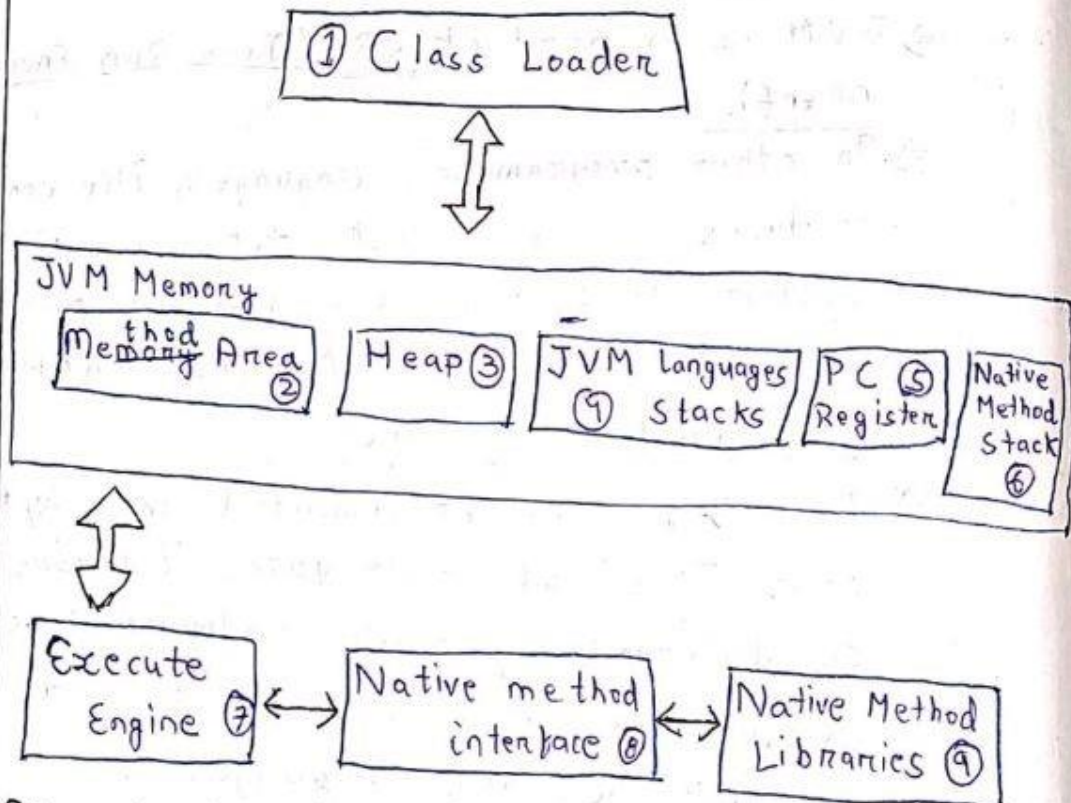 ① Class Loader
JVM Memory
Method Area ②
Heap ③
JVM Languages
④ Stacks
PC ⑤
Register
Native
Method
Stack
⑥
Execute
Engine ⑦
Native method
interface ⑧
Native Method
Libraries ⑨